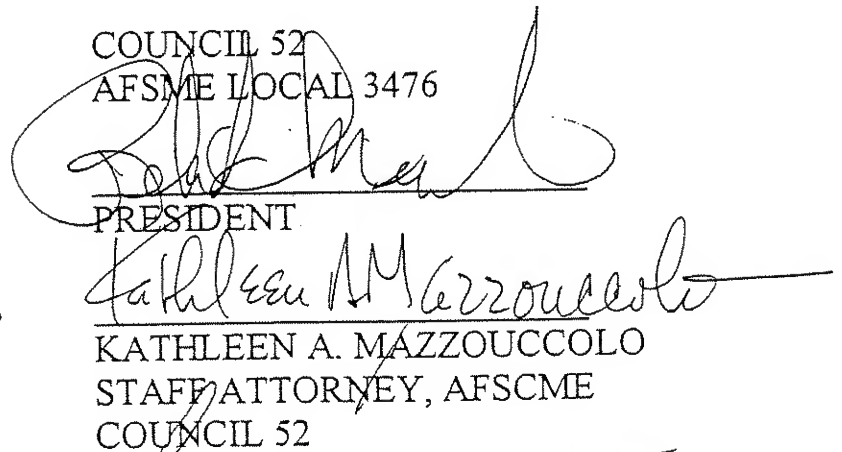 COUNCIL 52
AFSME LOCAL 3476
PRESIDENT
Kathleen A Mazzouccolo
KATHLEEN A. MAZZOUCCOLO
STAFF ATTORNEY, AFSCME
COUNCIL 52